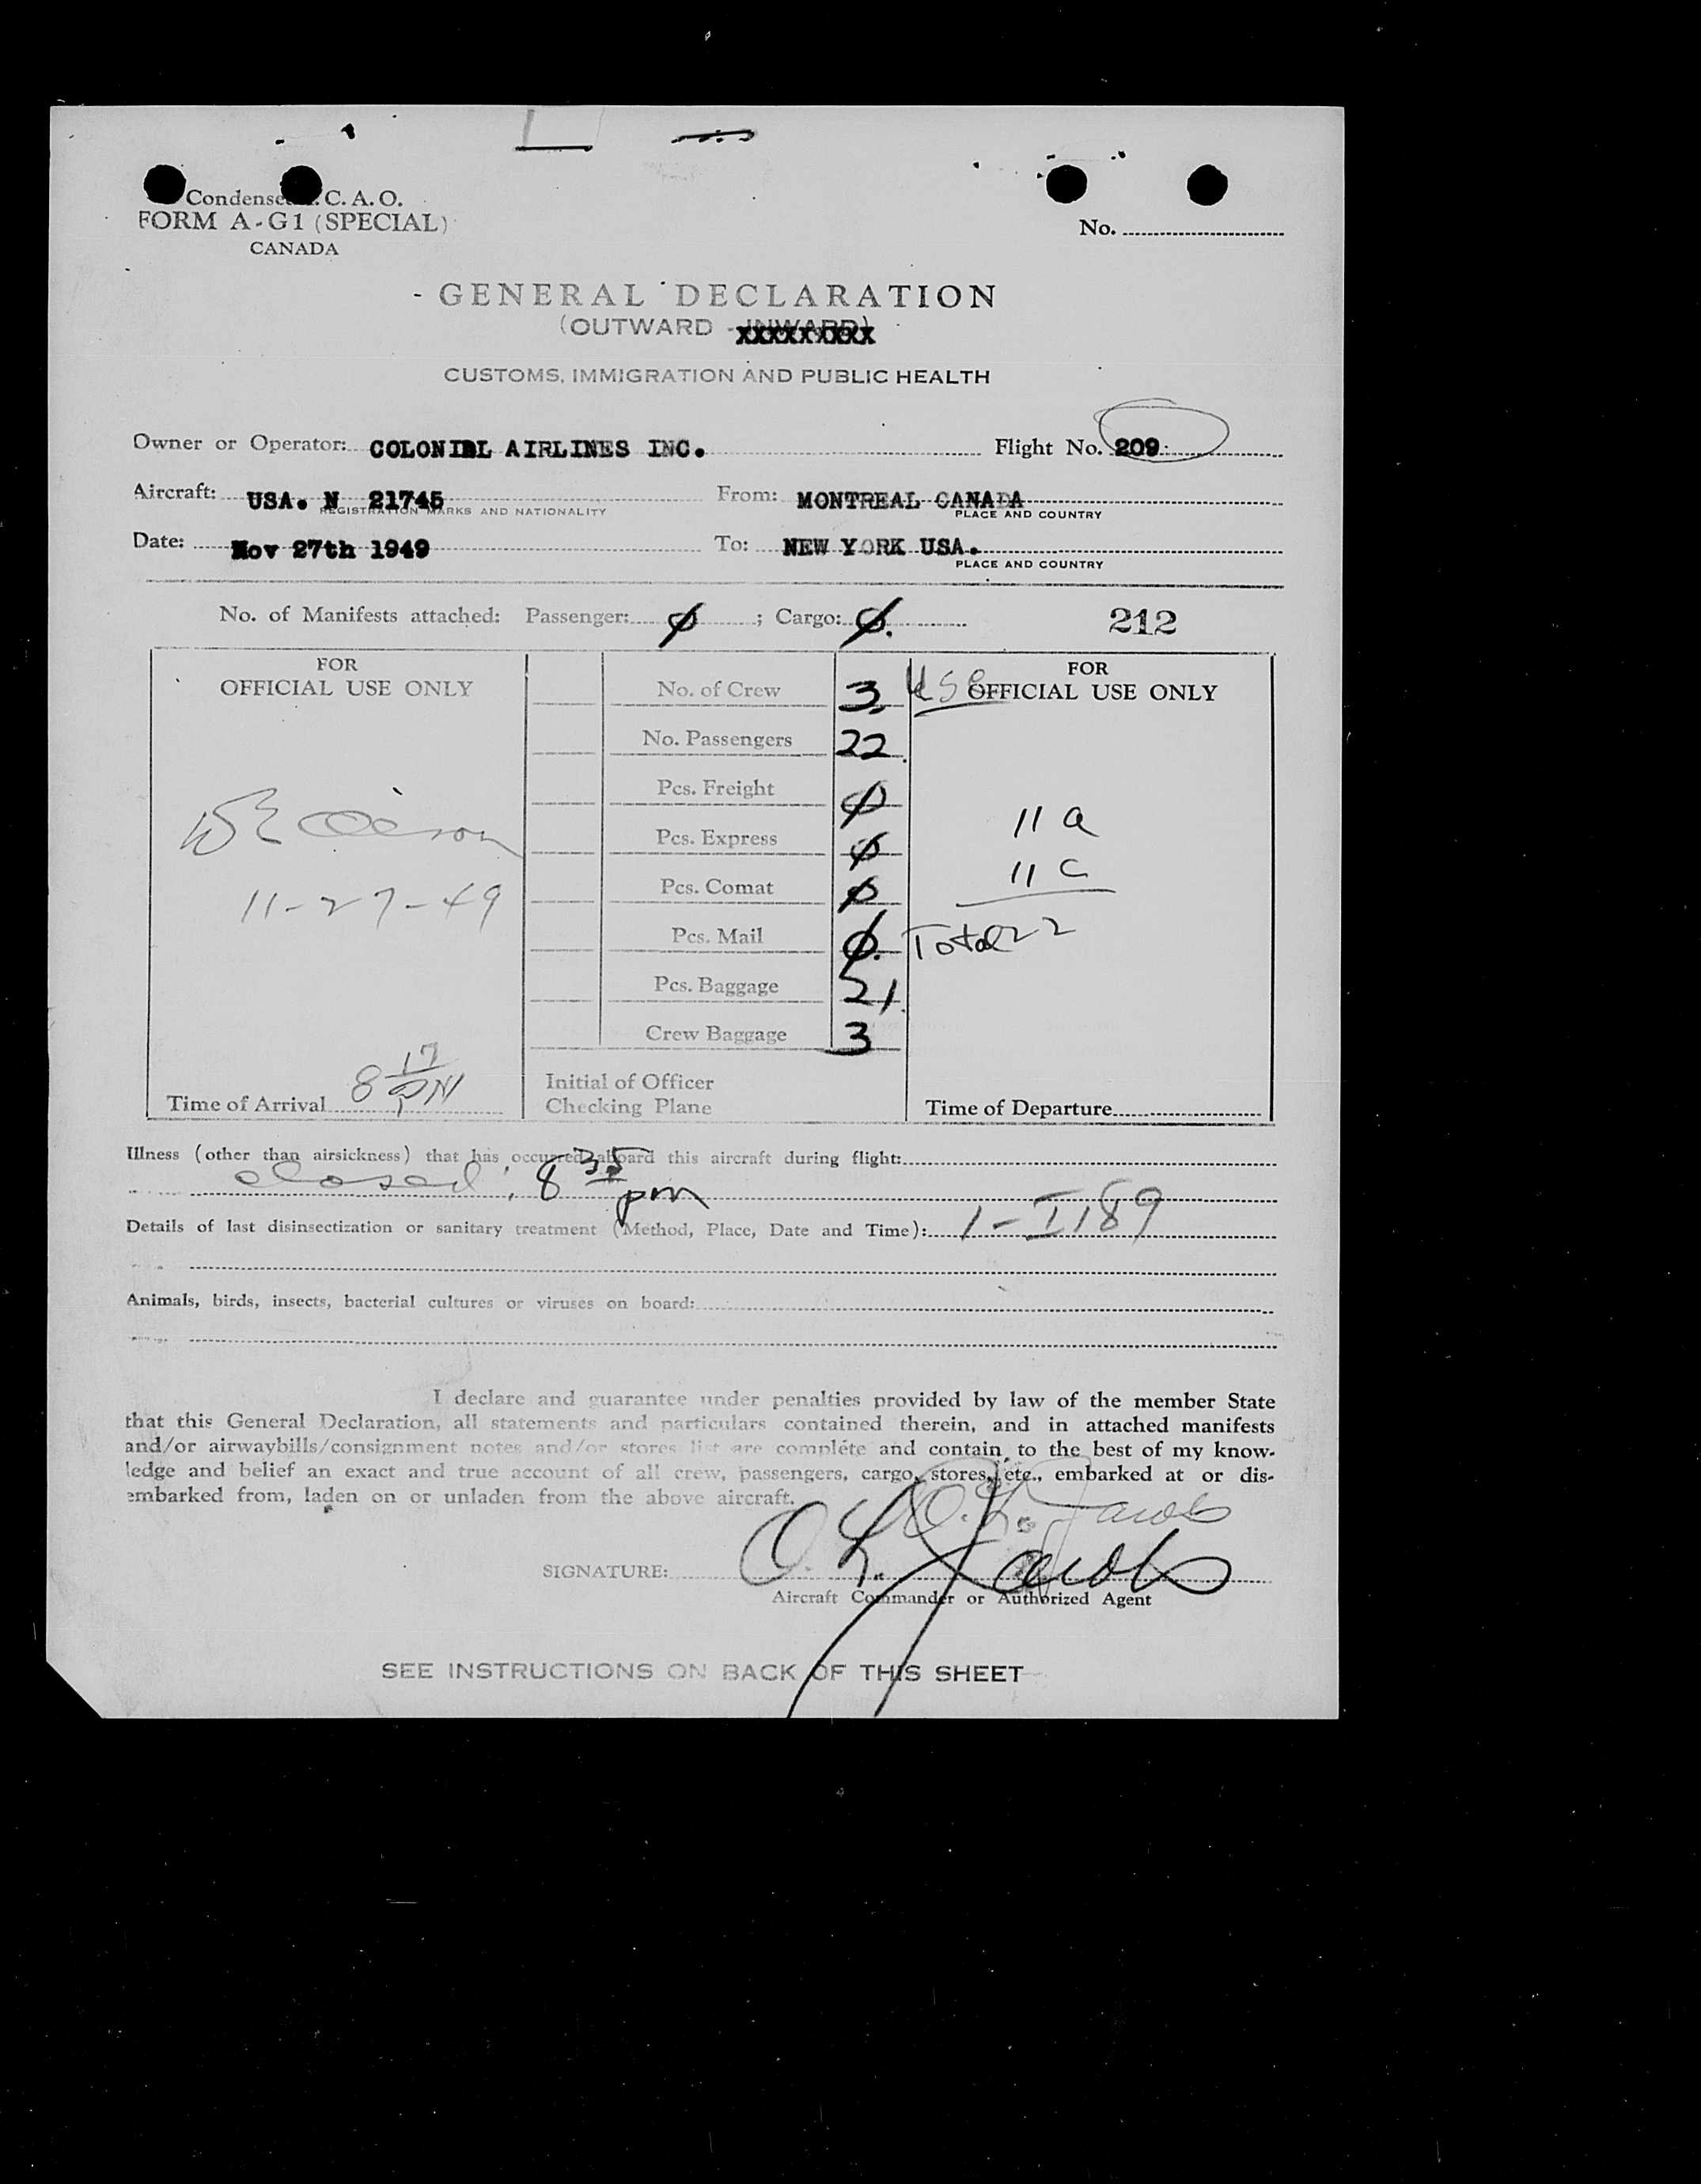 Condensed I.C.A.O.
FORM A-G1 (SPECIAL)
CANADA
No.
- GENERAL DECLARATION
(OUTWARD - INWARD)
XXXXXXXXX
CUSTOMS, IMMIGRATION AND PUBLIC HEALTH
Owner or Operator: COLONIAL AIRLINES INC. Flight No. 209
Aircraft: USA. N 21745 From: MONTREAL CANADA
REGISTRATION MARKS AND NATIONALITY PLACE AND COUNTRY
Date: Nov 27th 1949 To: NEW YORK USA.
PLACE AND COUNTRY
No. of Manifests attached: Passenger: Ø ; Cargo: Ø. 212
FOR
OFFICIAL USE ONLY
11-27-49
Time of Arrival 8 17 PM
No. of Crew 3
No. Passengers 22
Pcs. Freight Ø
Pcs. Express Ø
Pcs. Comat Ø
Pcs. Mail Ø
Pcs. Baggage 21
Crew Baggage 3
Initial of Officer
Checking Plane
FOR
OFFICIAL USE ONLY
11 a
11 c
Total 22
Time of Departure
Illness (other than airsickness) that has occurred aboard this aircraft during flight:
closed, 8 35 pm
Details of last disinsectization or sanitary treatment (Method, Place, Date and Time): 1-I189
Animals, birds, insects, bacterial cultures or viruses on board:
I declare and guarantee under penalties provided by law of the member State
that this General Declaration, all statements and particulars contained therein, and in attached manifests
and/or airwaybills/consignment notes and/or stores list are complete and contain to the best of my know-
ledge and belief an exact and true account of all crew, passengers, cargo, stores, etc., embarked at or dis-
embarked from, laden on or unladen from the above aircraft.
O. L. Jacobs
SIGNATURE: O. L. Jacobs
Aircraft Commander or Authorized Agent
SEE INSTRUCTIONS ON BACK OF THIS SHEET